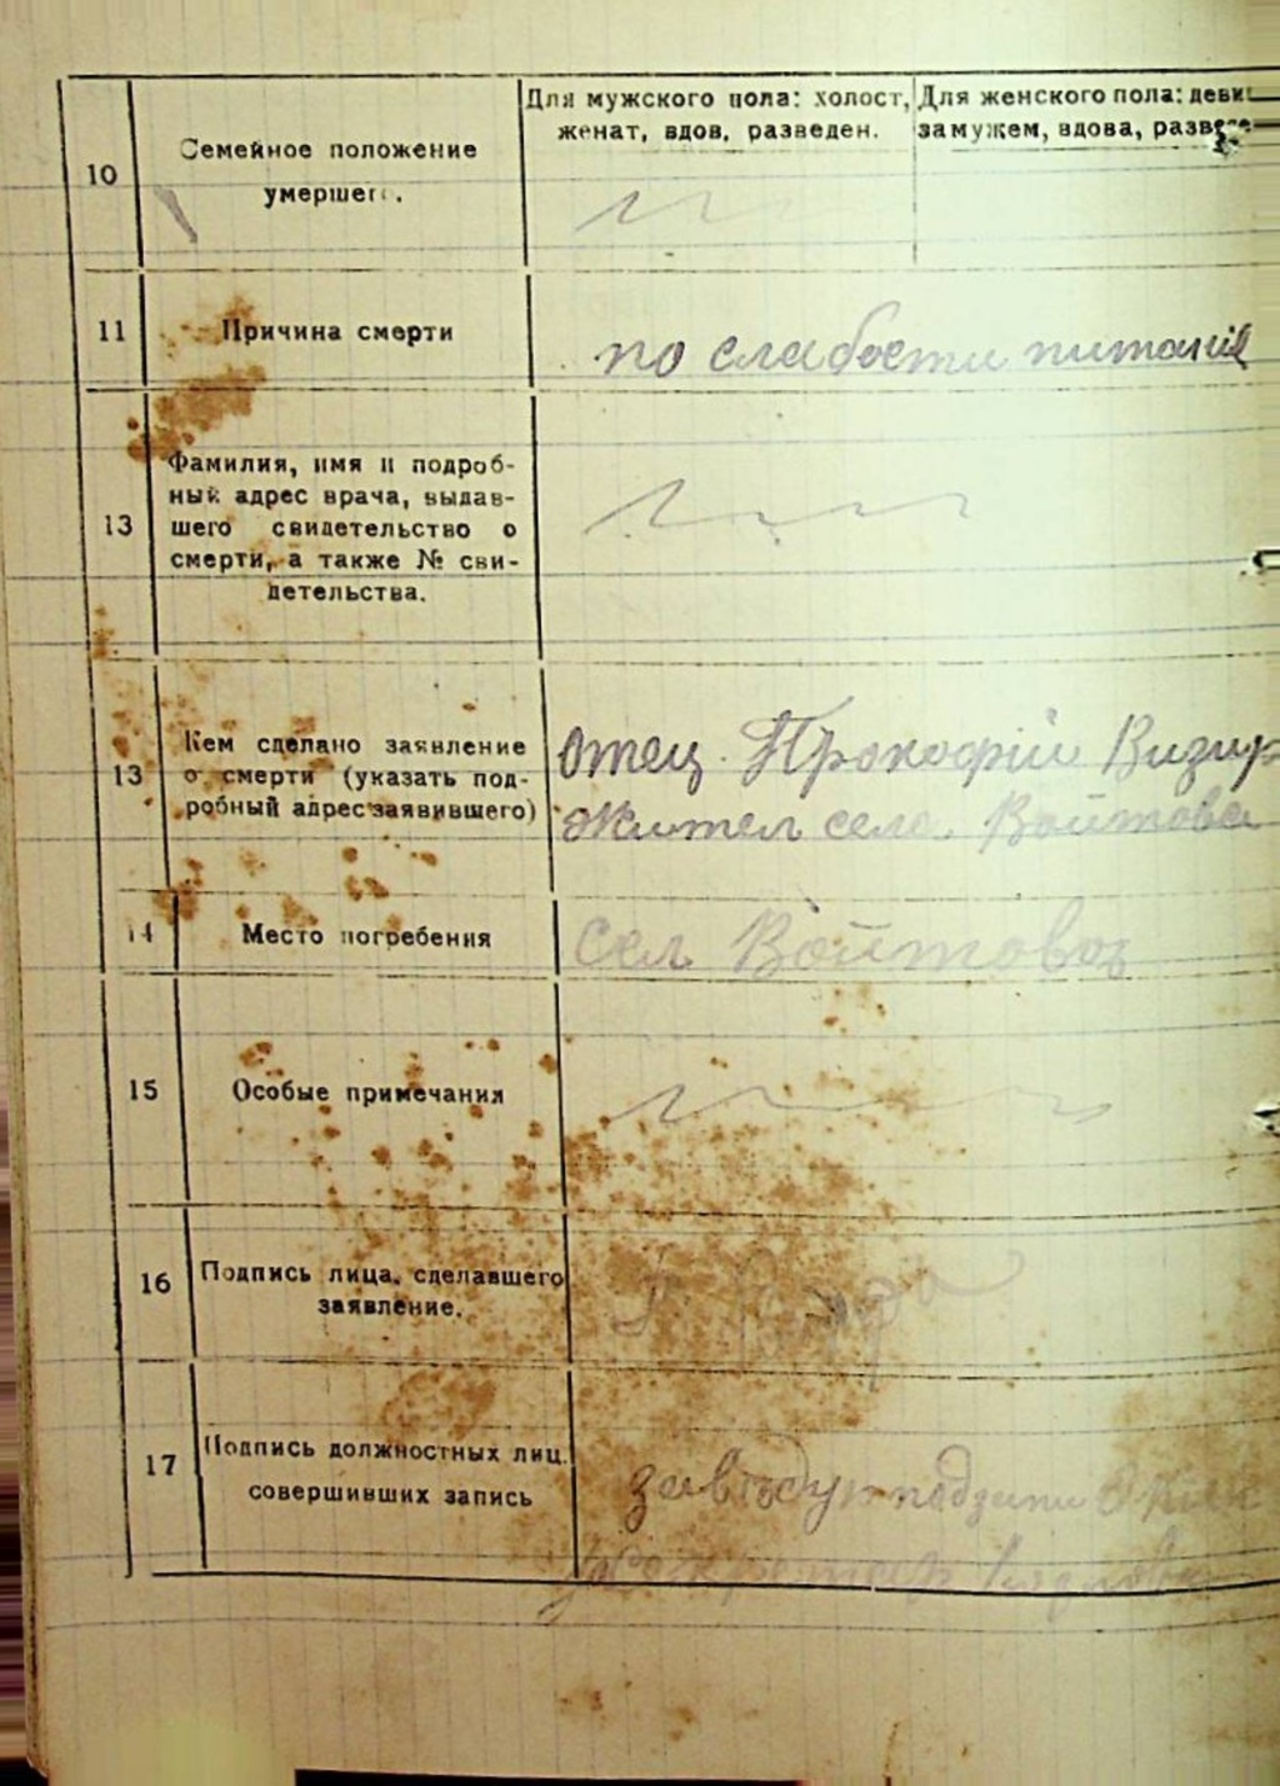 10
Семейное положение
умершего.
Для мужского пола: холост,
женат, вдов, разведен.
Для женского пола: деви
замужем, вдова, разве
11
Причина смерти
по слабости питание
13
Фамилия, имя и подроб-
ный адрес врача, выдав-
шего свидетельство о
смерти, а также № сви-
детельства.
13
Кем сделано заявление
о смерти (указать под-
робный адрес заявившего)
Отец Прокофій Визир
Жител села Войтовец
14
Место погребения
Сел Войтовец
15
Особые примечания
16
Подпись лица, сделавшего
заявление.
17
Подпись должностных лиц,
совершивших запись